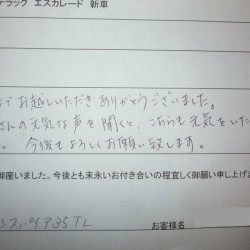 デラック エスカレード 新車
でお越しいただきありがとうございました。
さんの元気な声を聞くと、こちらも元気をいた
。今後もよろしくお願い致します。
御座いました。今後とも末永いお付き合いの程宜しく御願い申し上げ
ンスパイア35TL
お客様名